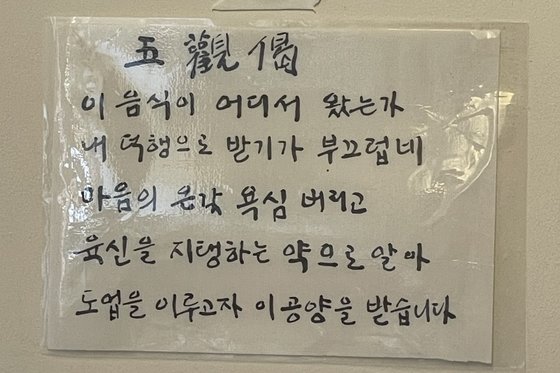 五觀偈
이 음식이 어디서 왔는가
내 덕행으로 받기가 부끄럽네
마음의 온갖 욕심 버리고
육신을 지탱하는 약으로 알아
도업을 이루고자 이 공양을 받습니다